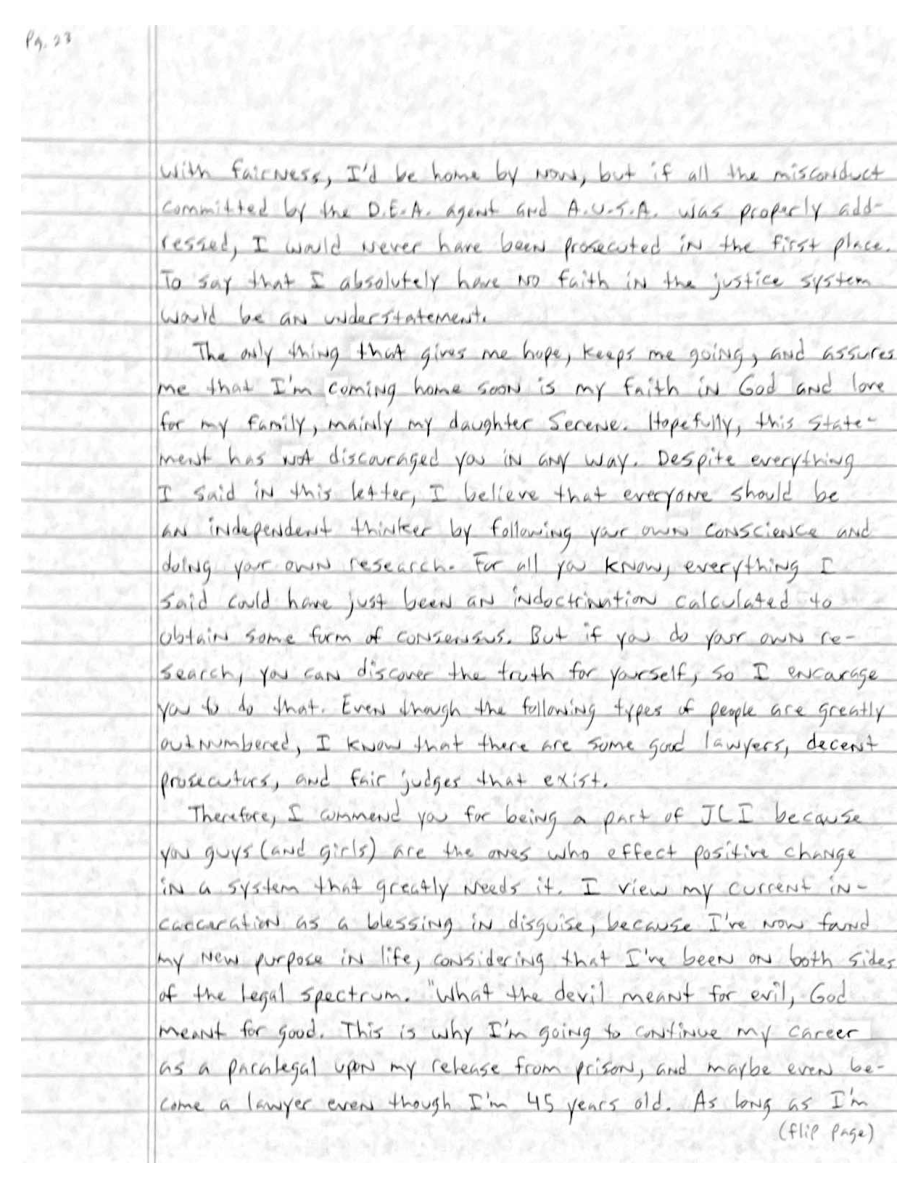 Pg. 23
with fairness, I'd be home by now, but if all the misconduct
committed by the D.E.A. agent and A.U.S.A. was properly add-
ressed, I would never have been prosecuted in the first place.
To say that I absolutely have no faith in the justice system
would be an understatement.
The only thing that gives me hope, keeps me going, and assures
me that I'm coming home soon is my faith in God and love
for my family, mainly my daughter Serene. Hopefully, this state-
ment has not discouraged you in any way. Despite everything
I said in this letter, I believe that everyone should be
an independent thinker by following your own conscience and
doing your own research. For all you know, everything I
said could have just been an indoctrination calculated to
obtain some form of consensus. But if you do your own re-
search, you can discover the truth for yourself, so I encourage
you to do that. Even though the following types of people are greatly
outnumbered, I know that there are some good lawyers, decent
prosecutors, and fair judges that exist.
Therefore, I commend you for being a part of JCI because
you guys (and girls) are the ones who effect positive change
in a system that greatly needs it. I view my current in-
carceration as a blessing in disguise, because I've now found
my new purpose in life, considering that I've been on both sides
of the legal spectrum. "What the devil meant for evil, God
meant for good. This is why I'm going to continue my career
as a paralegal upon my release from prison, and maybe even be-
come a lawyer even though I'm 45 years old. As long as I'm
(flip page)